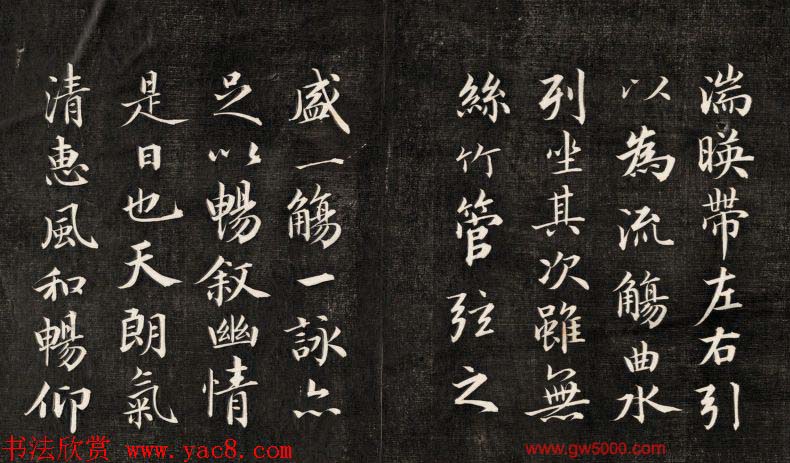 湍暎帶左右引
以為流觴曲水
列坐其次雖無
絲竹管弦之
盛一觴一詠亦
足以暢叙幽情
是日也天朗氣
清惠風和暢仰
书法欣赏 www.yac8.com
www.gw5000.com